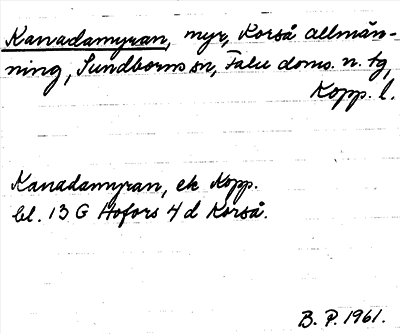 Kanadamyran, myr, Korså allmän-
ning, Sundborns sn, Falu doms. n. tg,
Kopp. l.
Kanadamyran, ek Kopp.
bl. 13 G Hofors 4 d Korså.
B. P. 1961.